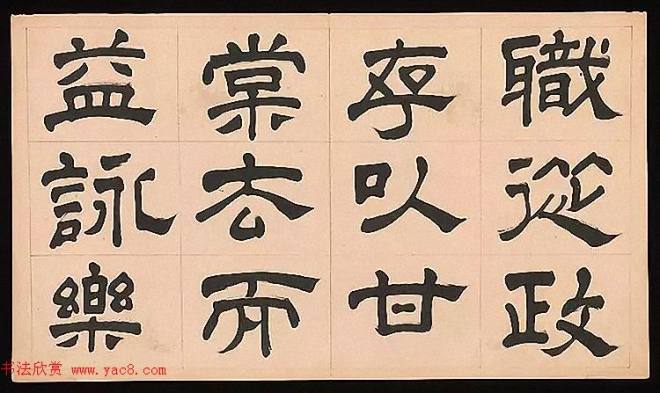 職從政
存以甘
棠去而
益詠樂
书法欣赏 www.yac8.com